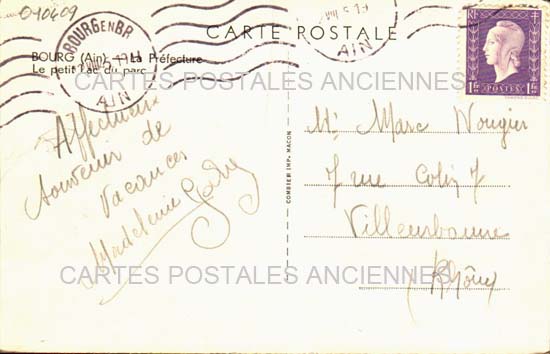 040609
CARTE POSTALE
BOURG EN BR.
AIN
AIN
BOURG (Ain) - La Préfecture
Le petit Lac du parc
CARTES POSTALES ANCIENNES
RF
POSTES
1 fr
1 fr
Affectueux
souvenir de
vacances
Madeleine
COMBIER IMP. MACON
Mr Marc Nougier
7 rue Colin 7
Villeurbanne
Rhône
CARTES POSTALES ANCIENNES